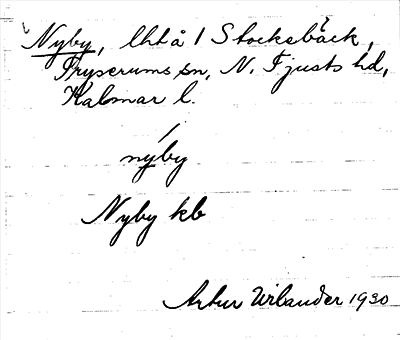 Nyby, lht å 1 Stocksbäck,
Tryserums sn, N. Tjusts hd,
Kalmar l.
nyby
Nyby kb
Artur Wilander 1930